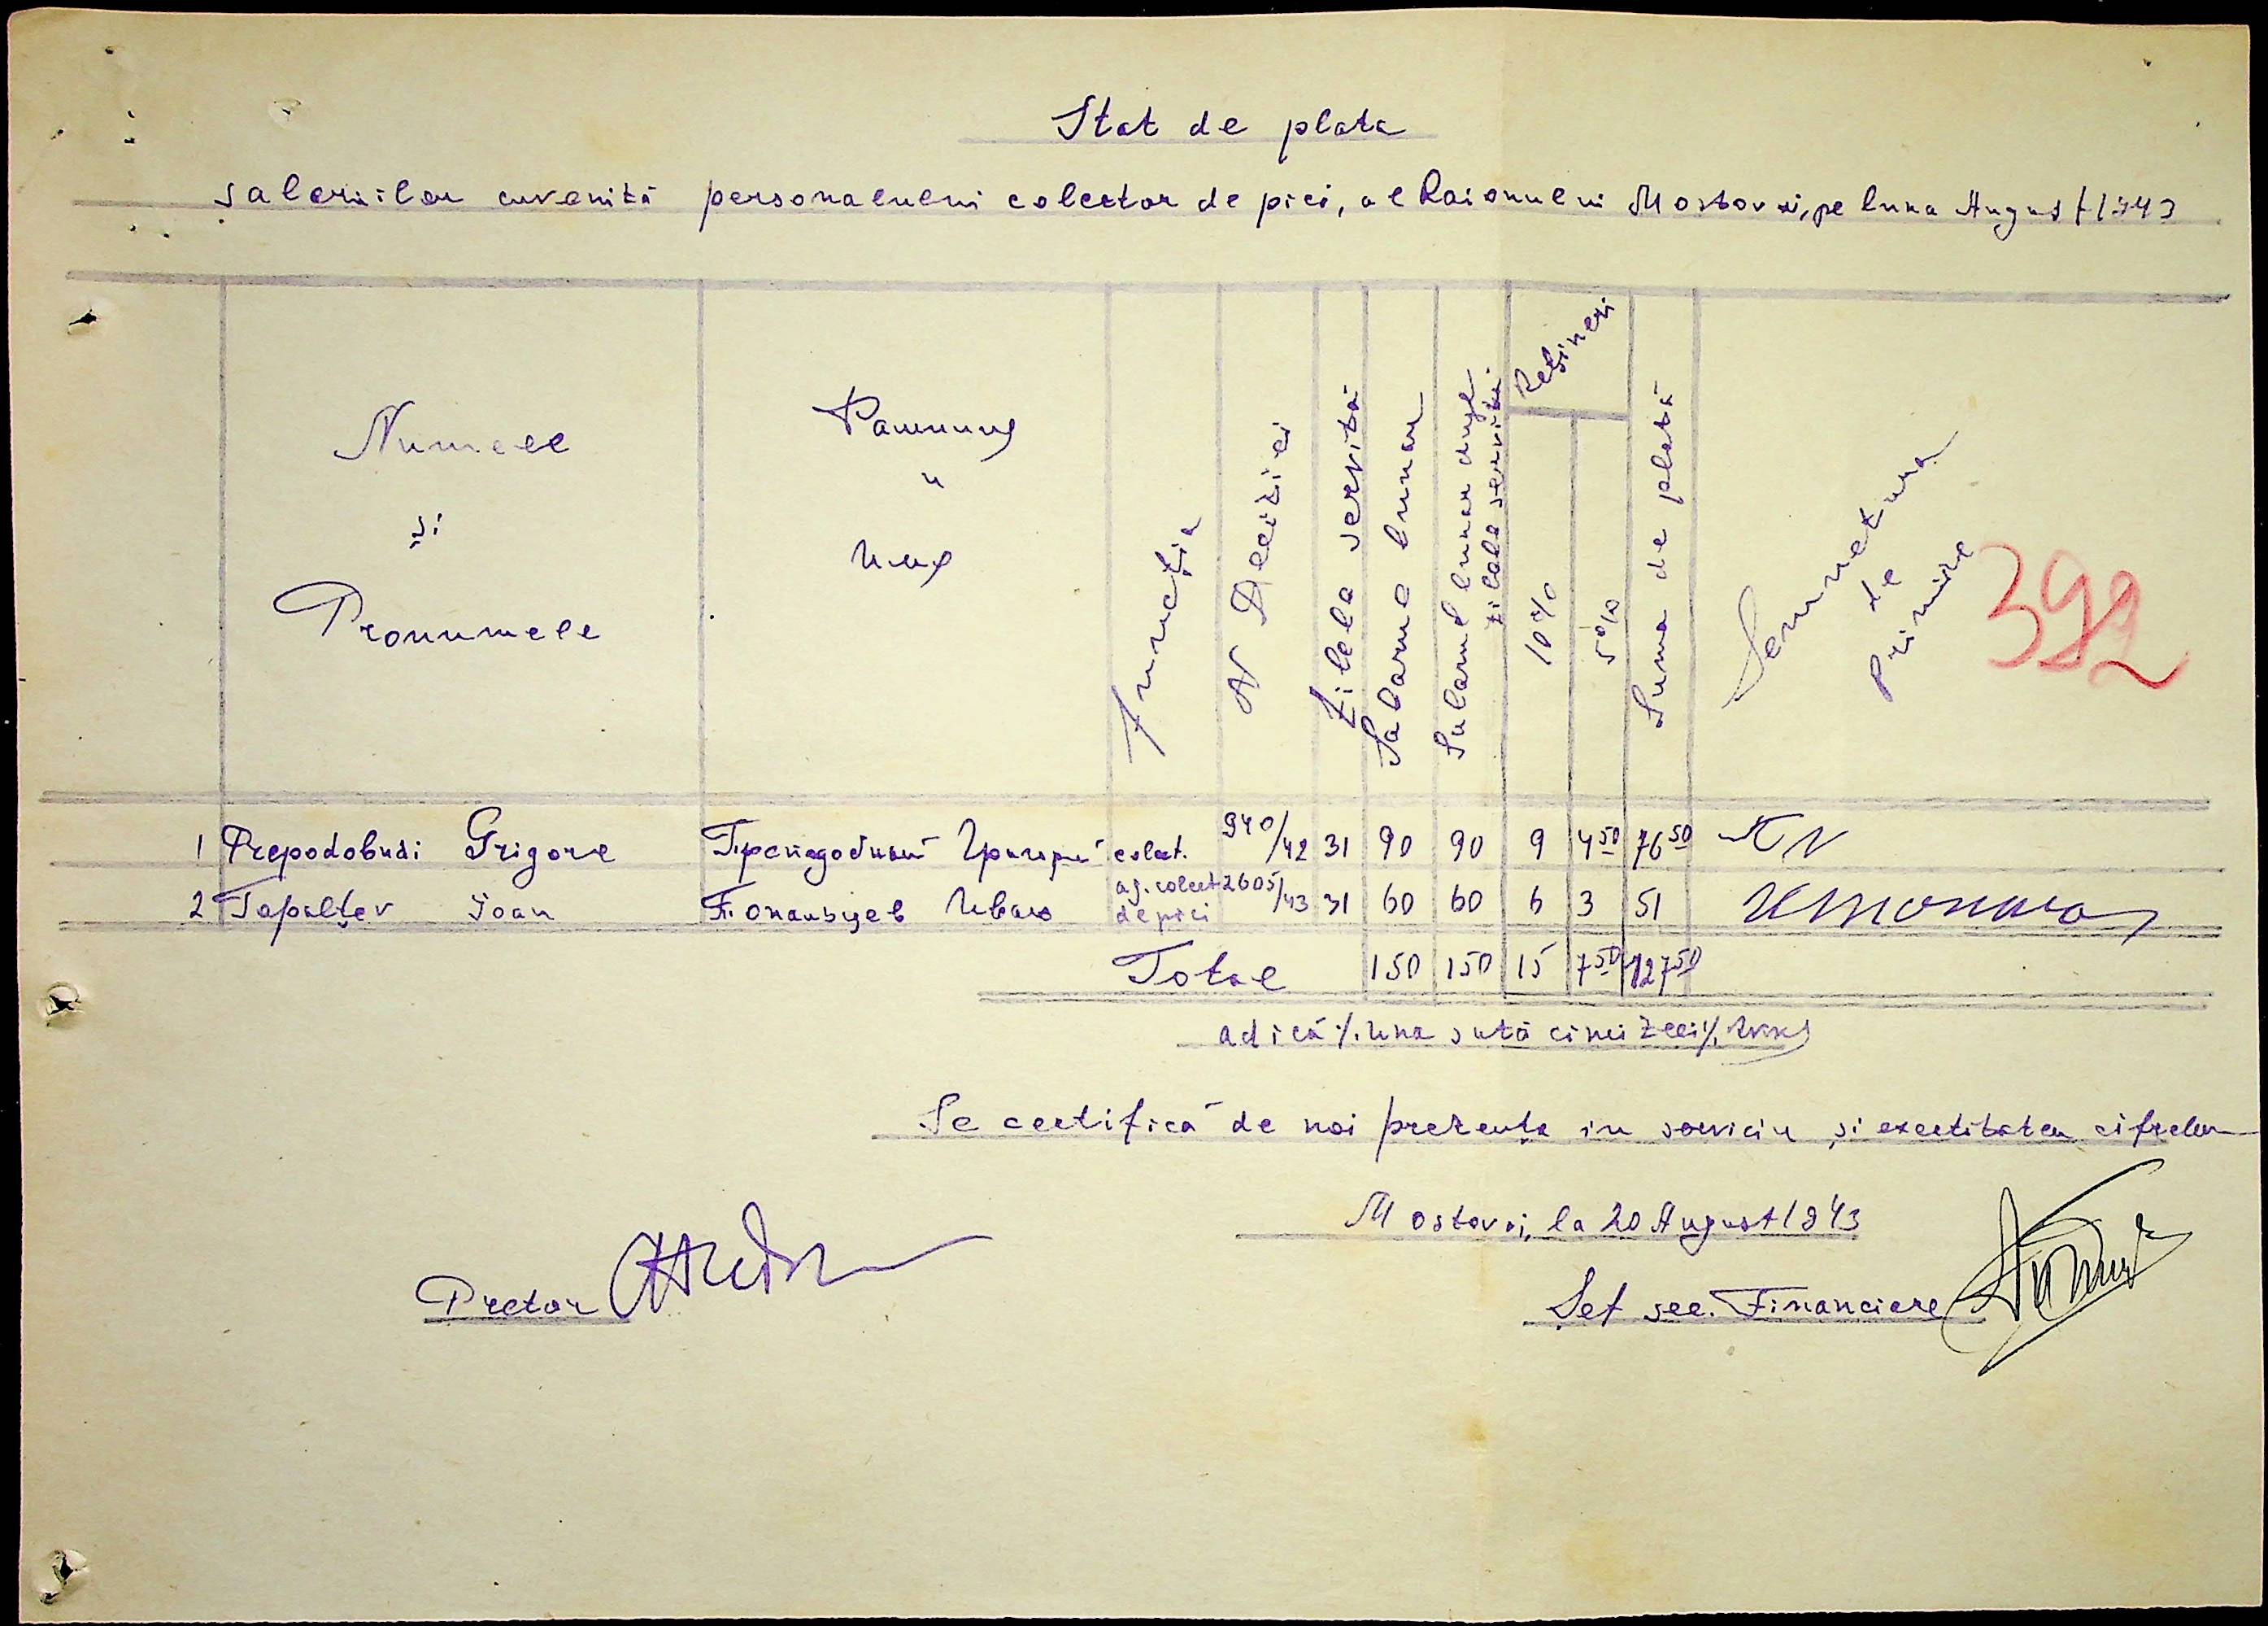 Stat de plata
salariilor cuvenită personalului colector de piei, al Raionului Mostovoi, pe luna August 1943
Numele
și
Pronumele
Фамилия
и
имя
Funcția
N Deciziei
Zilele servită
Salarul lunar
Salarul lunar dupe
zilele servită.
Rețineri
10%
5%
Suma de plată
Semnetura
de
primire
392
1 Prepodobnâi Grigore Преподобный Григорий colect. 940/42 31 90 90 9 4 50 76 50
2 Tapalțev Ioan Ивано ag. colect de piei 2605/43 31 60 60 6 3 51
Total 150 150 15 7 50 127 50
adică %. una sută cinci zeci %,
Se certifică de noi prezența in serviciu și exectitatea cifrelor
Mostovoi, la 20 August 1943
Pretor
Șef sec. Financiare